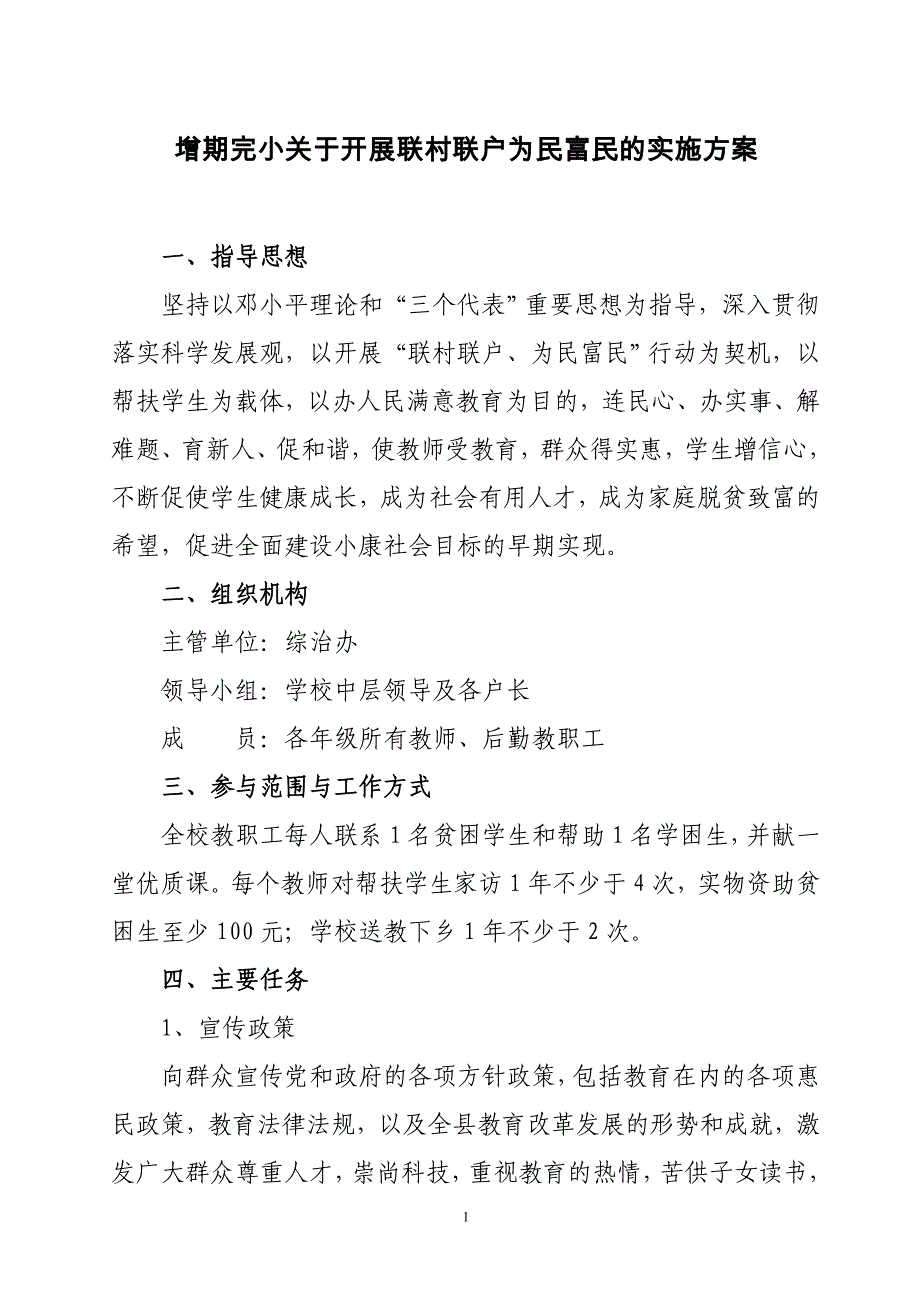 增期完小关于开展联村联户为民富民的实施方案
一、指导思想
坚持以邓小平理论和“三个代表”重要思想为指导，深入贯彻
落实科学发展观，以开展“联村联户、为民富民”行动为契机，以
帮扶学生为载体，以办人民满意教育为目的，连民心、办实事、解
难题、育新人、促和谐，使教师受教育，群众得实惠，学生增信心，
不断促使学生健康成长，成为社会有用人才，成为家庭脱贫致富的
希望，促进全面建设小康社会目标的早期实现。
二、组织机构
主管单位：综治办
领导小组：学校中层领导及各户长
成　　员：各年级所有教师、后勤教职工
三、参与范围与工作方式
全校教职工每人联系1名贫困学生和帮助1名学困生，并献一
堂优质课。每个教师对帮扶学生家访1年不少于4次，实物资助贫
困生至少100元；学校送教下乡1年不少于2次。
四、主要任务
1、宣传政策
向群众宣传党和政府的各项方针政策，包括教育在内的各项惠
民政策，教育法律法规，以及全县教育改革发展的形势和成就，激
发广大群众尊重人才，崇尚科技，重视教育的热情，苦供子女读书，
1